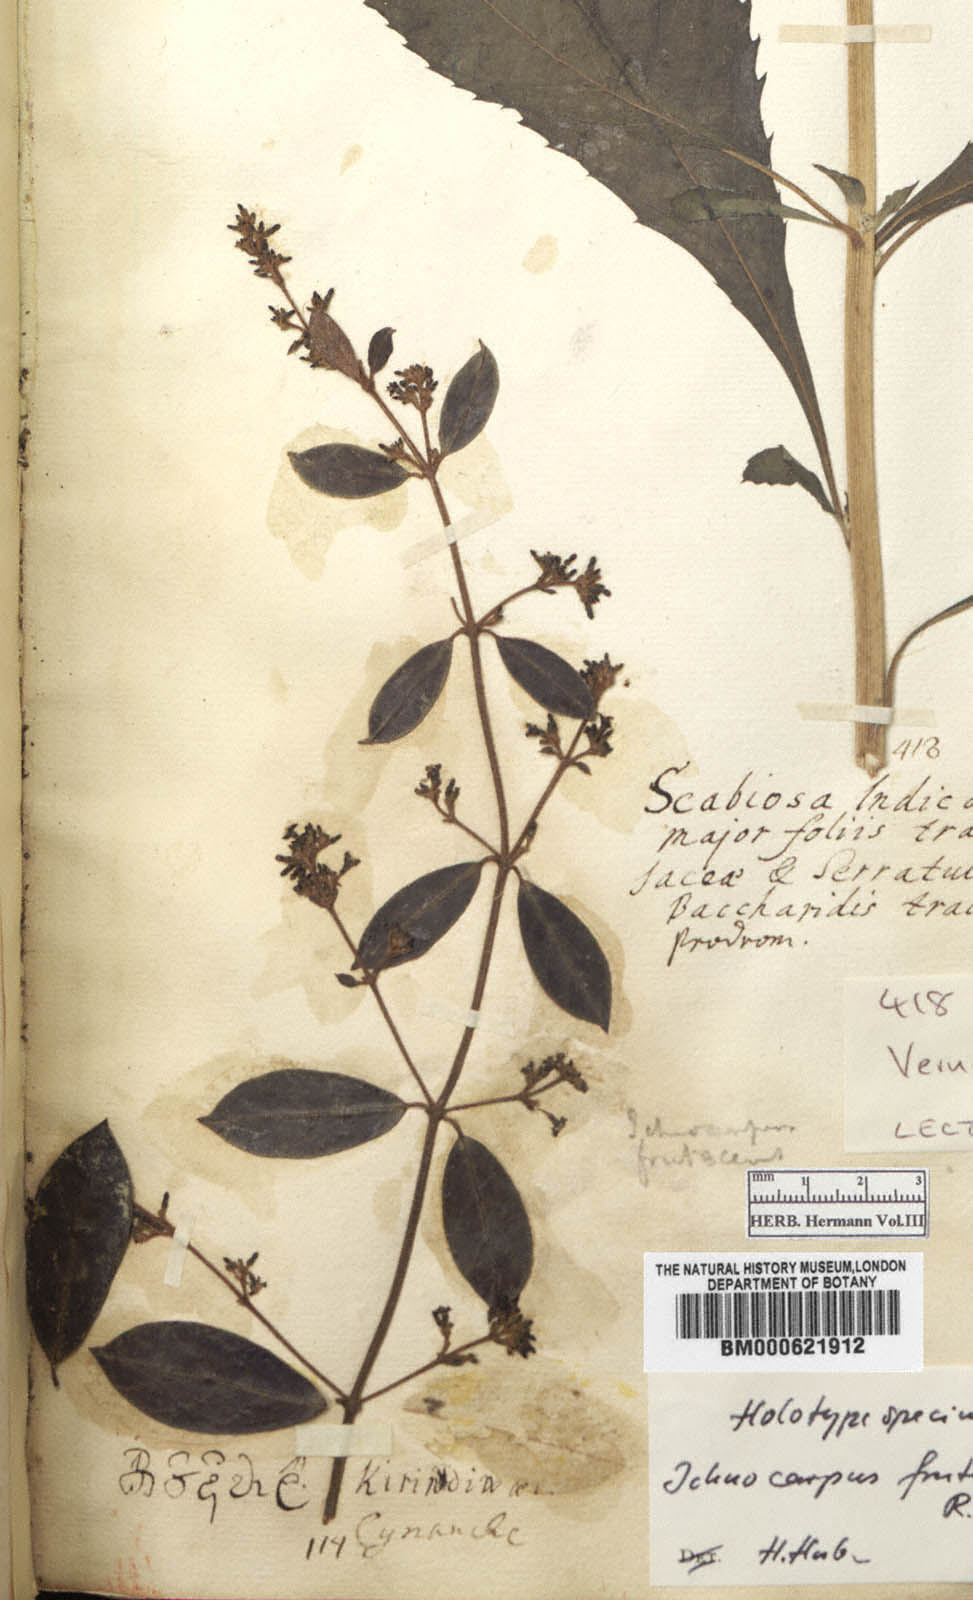 418
Scabiosa Indica
major foliis tra
jaceæ & Serratu
Baccharidis trac
Prodrom.
418
Vern
LECT
Ichnocarpus
frutescens
mm 1 2 3
HERB. Hermann Vol.III
THE NATURAL HISTORY MUSEUM,LONDON
DEPARTMENT OF BOTANY
BM000621912
Holotype specim
Ichnocarpus frut
R.
Det. H. Hub.
Kirindiwæ
114 Cynanche